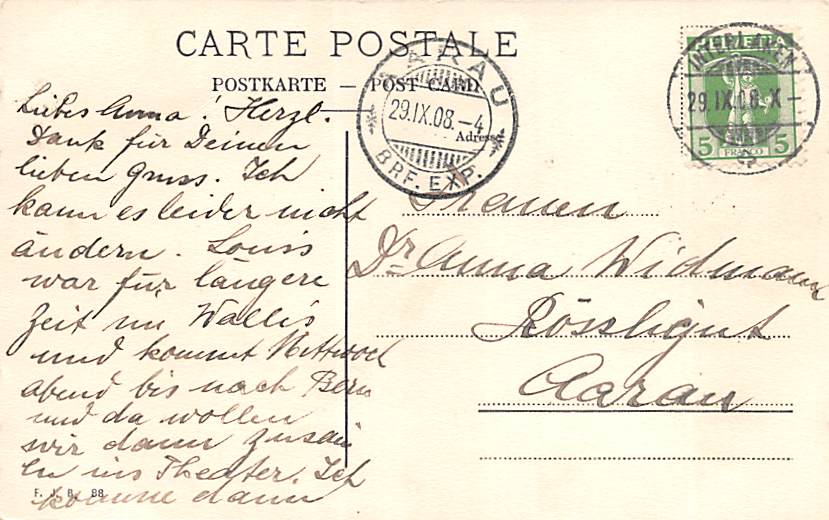 CARTE POSTALE
POSTKARTE — POST CARD
Adresse
AARAU
29.IX.08.-4
BRF. EXP.
HELVETIA
INTERLAKEN
29.IX.08.X-
5 FRANCO 5
Liebes Anna! Herzl.
Dank für Deinen
lieben Gruss. Ich
kann es leider nicht
ändern. Louis
war für längere
Zeit im Wallis
und kommt Mittwoch
abend bis nach Bern
und da wollen
wir dann zusam
en ins Theater. Ich
komme dann
F. J. B. 88
Frauen
Dr Anna Widmann
Rössligut
Aarau